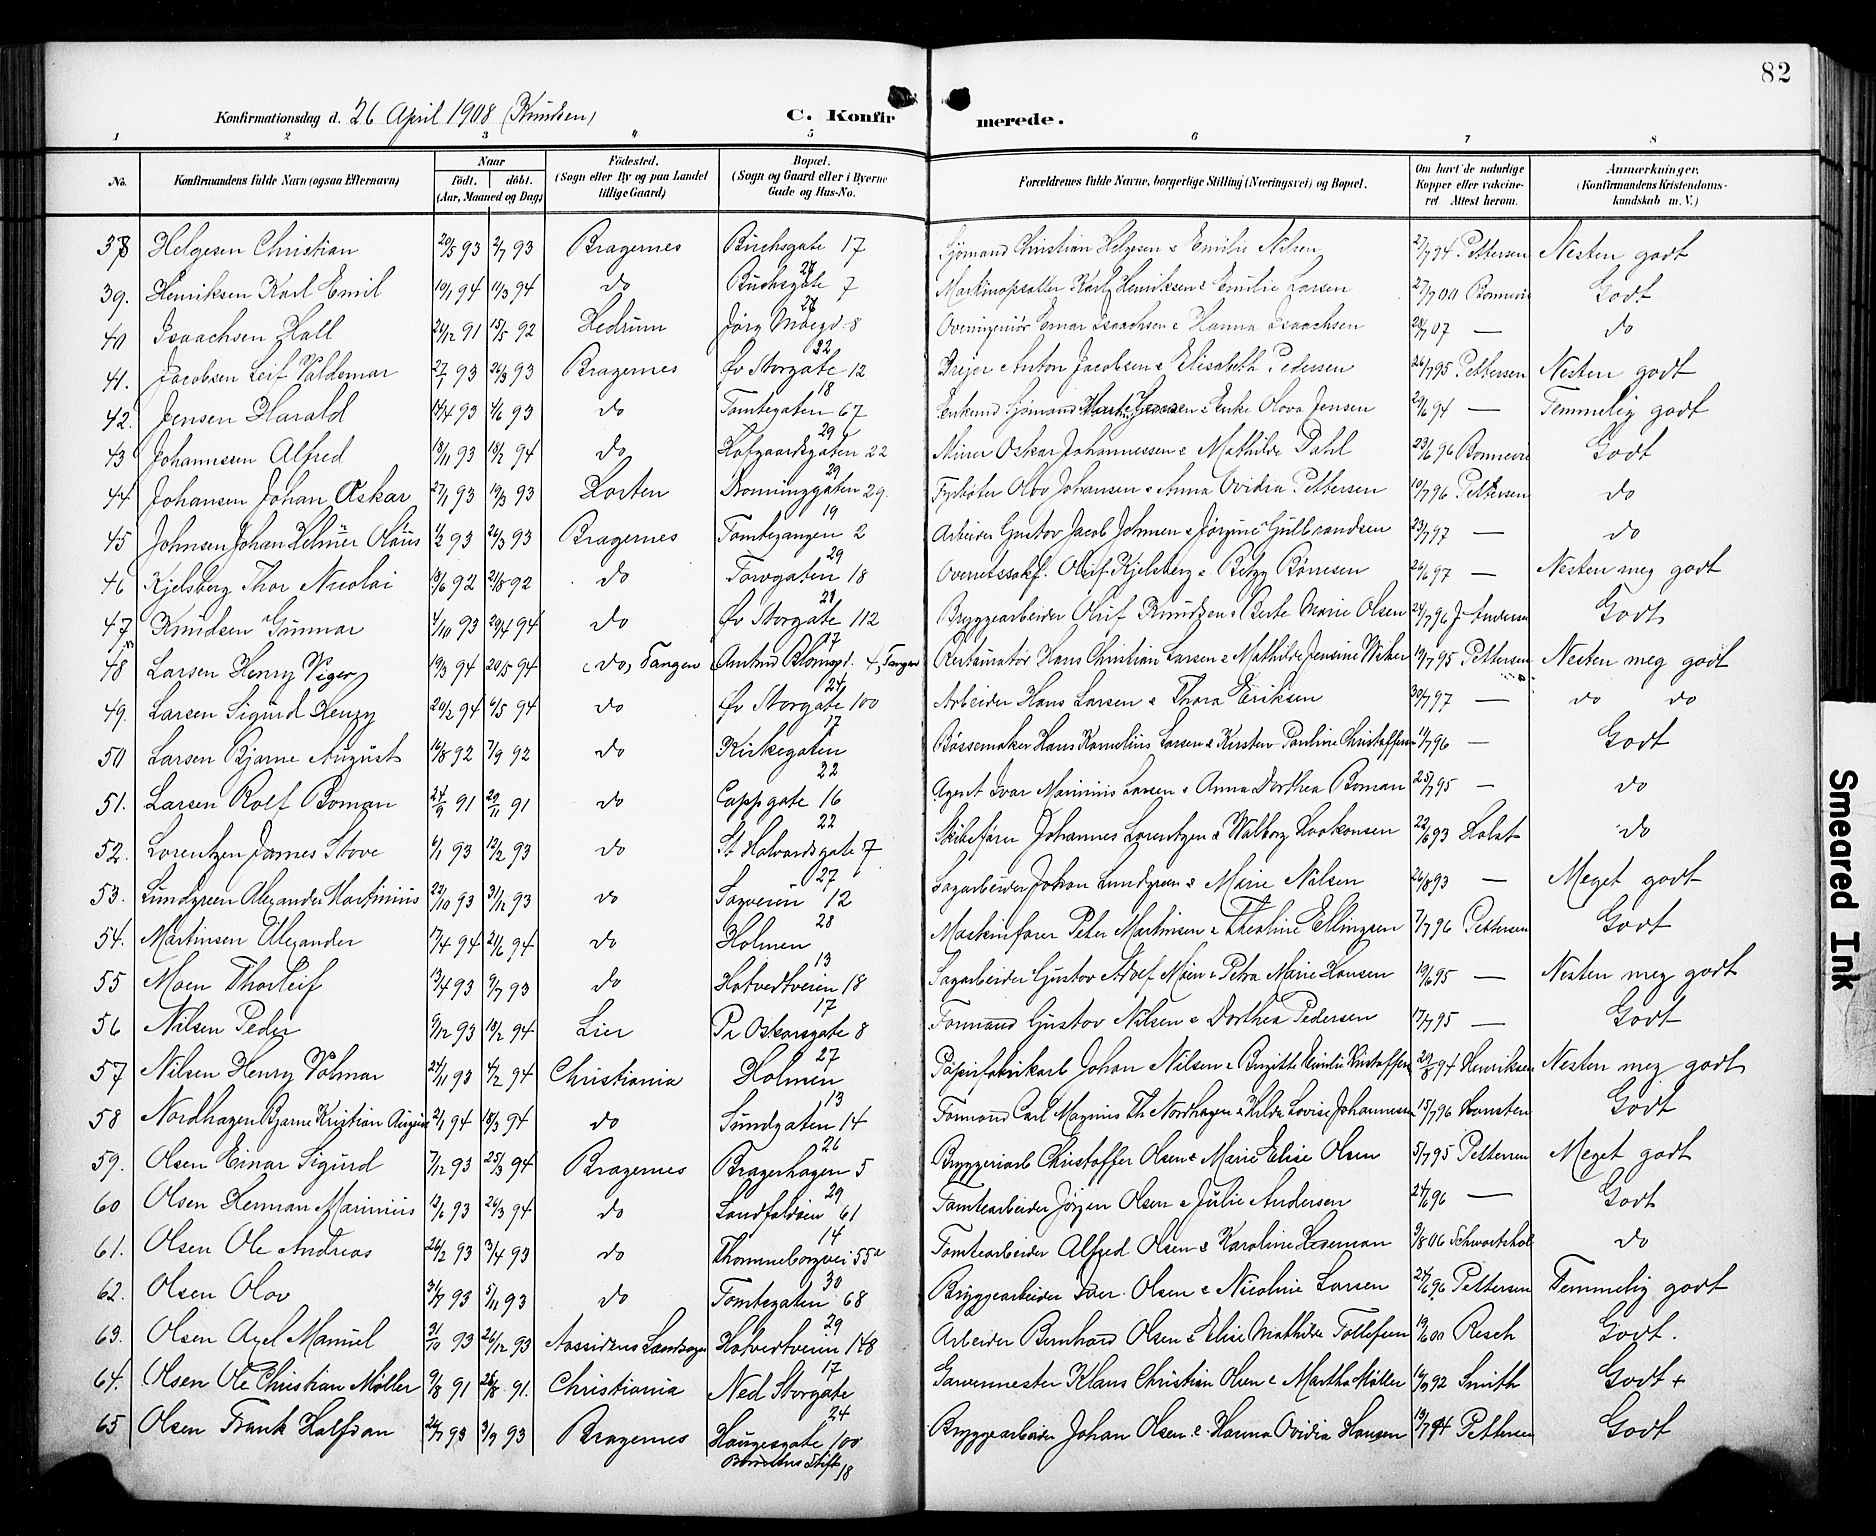 82
Konfirmationsdag d. 26 April 1908 (Knudsen)
C. Konfirmerede.
1 2 3 4 5 6 7 8
No. Konfirmandens fulde Navn (ogsaa Efternavn) Naar født. døbt. (Aar, Maaned og Dag) Födested. (Sogn eller By og paa Landet tillige Gaard) Bopæl. (Sogn og Gaard eller i Byerne Gade og Hus-No. Forældrenes fulde Navne, borgerlige Stilling (Næringsvei) og Bopæl. Om havt de naturlige Kopper eller vakcineret Attest herom. Anmærkninger. (Konfirmandens Kristendomskundskab m. V.)
38 Helgesen Christian 20/5 93 2/7 93 Bragernes Buchsgate 17 Sjømand Christian Helgesen & Emilie Nilsen 27/7 94 Pettersen Nesten godt
39. Henriksen Karl Emil 10/1 94 11/3 94 do Buchsgate 7 Maskinopsætter Karl Henriksen & Emilie Larsen 27/7 00 Bonnevie Godt
40 Isaachsen Hall 21/12 91 15/5 92 Hedrum 8 Overingeniør Isaachsen & Hanna Isaachsen 07 — do
41. Jacobsen Leif Valdemar 27/1 93 26/3 93 Bragernes Øv Storgate 12 Drejer Anton Jacobsen & Elisabeth Pedersen 26/7 95 Pettersen Nesten godt
42. Jensen Harald 14/4 93 4/6 93 do Tomtegaten 67 Sjømand Jensen & Enke Olova Jensen 29/6 94 — Temmelig godt
43 Johannesen Alfred 18/11 93 18/2 94 do Hofgaardsgaten 22 Murer Oskar Johannessen & Mathilde Dahl 23/6 96 Bonnevie Godt
44 Johansen Johan Oskar 27/1 93 19/3 93 Horten Dronninggaten 29. Fyrbøter Olav Johansen & Anna Ovidia Pettersen 10/7 96 Pettersen do
45 Johnsen Johan Helmer Olaus 1/2 93 26/3 93 Bragernes Tomtegangen 2 Arbeider Gustav Jacob Johnsen & Jørgine Gulbrandsen 23/7 97 — do
46 Kjelsberg Thor Nicolai 13/6 92 21/8 92 do Torvgaten 18 Overretssakf. Oluf Kjelsberg & Betzy Børresen 29/6 97 — Nesten meg godt
47 Knudsen Gunnar 4/10 93 29/4 94 do Øv Storgate 112 Bryggearbeider Oluf Knudsen & Berte Marie Olsen 24/7 96 J. Andersen Godt
48 Larsen Henry Viger 19/3 94 20/5 94 do, Tangen 4, Tangen Restauratør Hans Christian Larsen & Mathilde Jensine Wiker 19/7 95 Pettersen Nesten meg godt
49. Larsen Sigurd Henry 20/2 94 6/5 94 do Øv Storgate 100 Arbeider Hans Larsen & Thora Eriksen 30/7 97 — do do
50 Larsen Bjarne August 16/8 92 7/9 92 do Kirkegaten Bøssemaker Hans Kornelius Larsen & Kirsten Pauline Christoffersen 17/7 96 — Godt
51. Larsen Rolf Boman 24/9 91 29/11 91 do Cappgate 16 Agent Ivar Marinius Larsen & Anna Dorthea Boman 25/7 95 — do
52. Lorentzen James Stove 6/1 93 12/2 93 do St Halvardsgate 7 Skibsfører Johannes Lorentzen & Walborg Haakonsen 22/6 93 Holst do
53. Lundgreen Alexander Martinius 22/10 93 31/12 93 do Sagveien 12 Sagarbeider Johan Lundgreen & Marie Nilsen 26/8 93 — Meget godt
54. Martinsen Alexander 17/4 94 21/6 94 do Holmen Maskinfører Peter Martinsen & Theoline Ellingsen 7/7 96 Pettersen Godt
55 Moen Thorleif 13/4 93 9/7 93 do Hotvedtveien 18 Sagarbeider Gustav Adolf Moen & Petra Marie Hansen 19/6 95 — Nesten meg godt
56 Nilsen Peder 9/12 93 18/2 94 Lier Pr Oskarsgate 8 Formand Gustav Nilsen & Dorthea Pedersen 17/7 95 — Godt
57 Nilsen Henry Volmar 24/11 93 4/2 94 Christiania Holmen Papirfabrikarb Johan Nilsen & Birgitte Emilie Kristoffersen 29/8 94 Henriksen Nesten meg godt
58 Nordhagen Bjarne Kristian August 2/1 94 18/3 94 do Sundgaten 14 Formand Carl Magnus Th Nordhagen & Hilda Lovise Johannesen 15/7 96 Godt
59. Olsen Einar Sigurd 7/12 93 25/3 94 Bragernes Bragerhagen 5 Bryggeriarb Christoffer Olsen & Marie Elise Olsen 5/7 95 Pettersen Meget godt
60 Olsen Herman Marinius 12/6 93 26/3 94 do Landfaldøen 61 Tomtearbeider Jørgen Olsen & Julie Andersen 24/6 96 — Godt
61. Olsen Ole Andreas 26/2 93 3/4 93 do Thommeborgvei 55a Tomtearbeider Alfred Olsen & Karoline Heseman 9/8 06 do
62. Olsen Olav 31/7 93 5/11 93 do Tomtegaten 68 Bryggearbeider Iver Olsen & Nicoline Larsen 24/6 96 Pettersen Temmelig godt
63. Olsen Axel Manuel 31/10 93 26/12 93 Aassidens Landsogn Hotvedtveien 148 Arbeider Bernhard Olsen & Elise Mathilde Tollefsen 19/6 00 Resch Godt.
64. Olsen Ole Christian Møller 9/8 91 25/8 91. Christiania Ned Storgate Garvermester Klaus Christian Olsen & Martha Møller 14/9 92 Smith Godt +
65 Olsen Frank Halfdan 24/7 93 3/9 93 Bragernes Haugesgate 100 Bryggearbeider Johan Olsen & Hanna Ovidia Hansen 13/7 94 Pettersen Godt
Stift 18
Smeared Ink